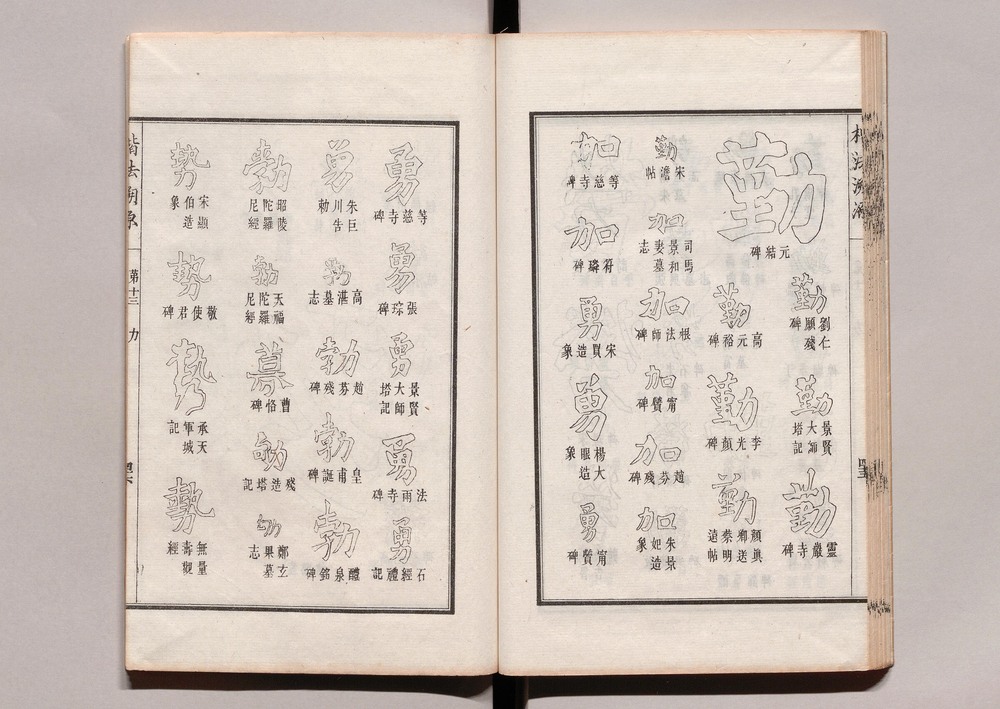 楷法溯源
勤
元結碑
勤
劉仁
願殘
碑
勤
景賢
大師
塔記
勤
靈巖寺碑
勤
高元裕碑
勤
李光顏碑
勤
顏眞
卿送
蔡明
遠帖
勤
宋儋帖
加
司馬
景和
妻墓
志
加
根法師碑
加
甯贙碑
加
趙芬殘碑
加
朱景
妃造
象
加
等慈寺碑
加
符璘碑
勇
宋買造象
勇
楊大
眼造
象
勇
甯贙碑
勇
等慈寺碑
勇
張琮碑
勇
景賢
大師
塔記
勇
法雨寺碑
勇
石經禮記
勇
朱巨
川告
勅
勃
高湛墓志
勃
趙芬殘碑
勃
皇甫誕碑
勃
醴泉銘碑
昭陵
陀羅
尼經
天福
陀羅
尼經
募
曹恪碑
殘造塔記
鄭玄
果墓
志
勢
宋顯
伯造
象
勢
敬使君碑
勢
承天
軍城
記
勢
無量
壽觀
經
楷法溯源
第十三
力